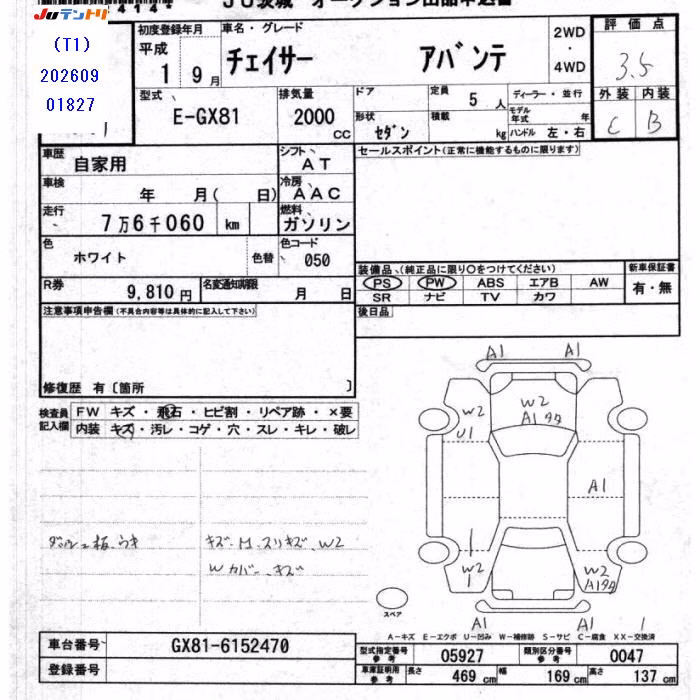 Juテントリ
(T1)
202609
01827
初度登録年月
平成
1 9月
車名・グレード
チェイサー アバンテ
2WD
・
4WD
評価点
3.5
外装 内装
C B
型式
E-GX81
排気量
2000
CC
ドア
形状
セダン
定員
5 人
積載
kg
ディーラー・並行
モデル年式 年
ハンドル 左・右
車歴
自家用
シフト
AT
車検
年 月( 日)
冷房
AAC
走行
7万6千060 km
燃料
ガソリン
色
ホワイト
色替
色コード
050
R券
9,810 円
名変通知期限
月 日
セールスポイント(正常に機能するものに限ります)
装備品(純正品に限り○をつけてください)
PS PW ABS エアB AW
SR ナビ TV カワ
新車保証書
有・無
後日品
注意事項申告欄(不具合内容等は具体的に記入して下さい)
修復歴 有〔箇所 〕
検査員
記入欄
FW キズ・飛石・ヒビ割・リペア跡・×要
内装 キズ・汚レ・コゲ・穴・スレ・キレ・破レ
A1 A1
W2
U1
W2
A1タタ
A1
W2
W2
A1タタ
A1 A1
スペア
A-キズ E-エクボ U-凹み W-補修跡 S-サビ C-腐食 XX-交換済
車台番号 GX81-6152470
登録番号
型式指定番号
参考
05927
類別区分番号
参考
0047
車庫証明用
参考
長さ 469 cm 幅 169 cm 高さ 137 cm